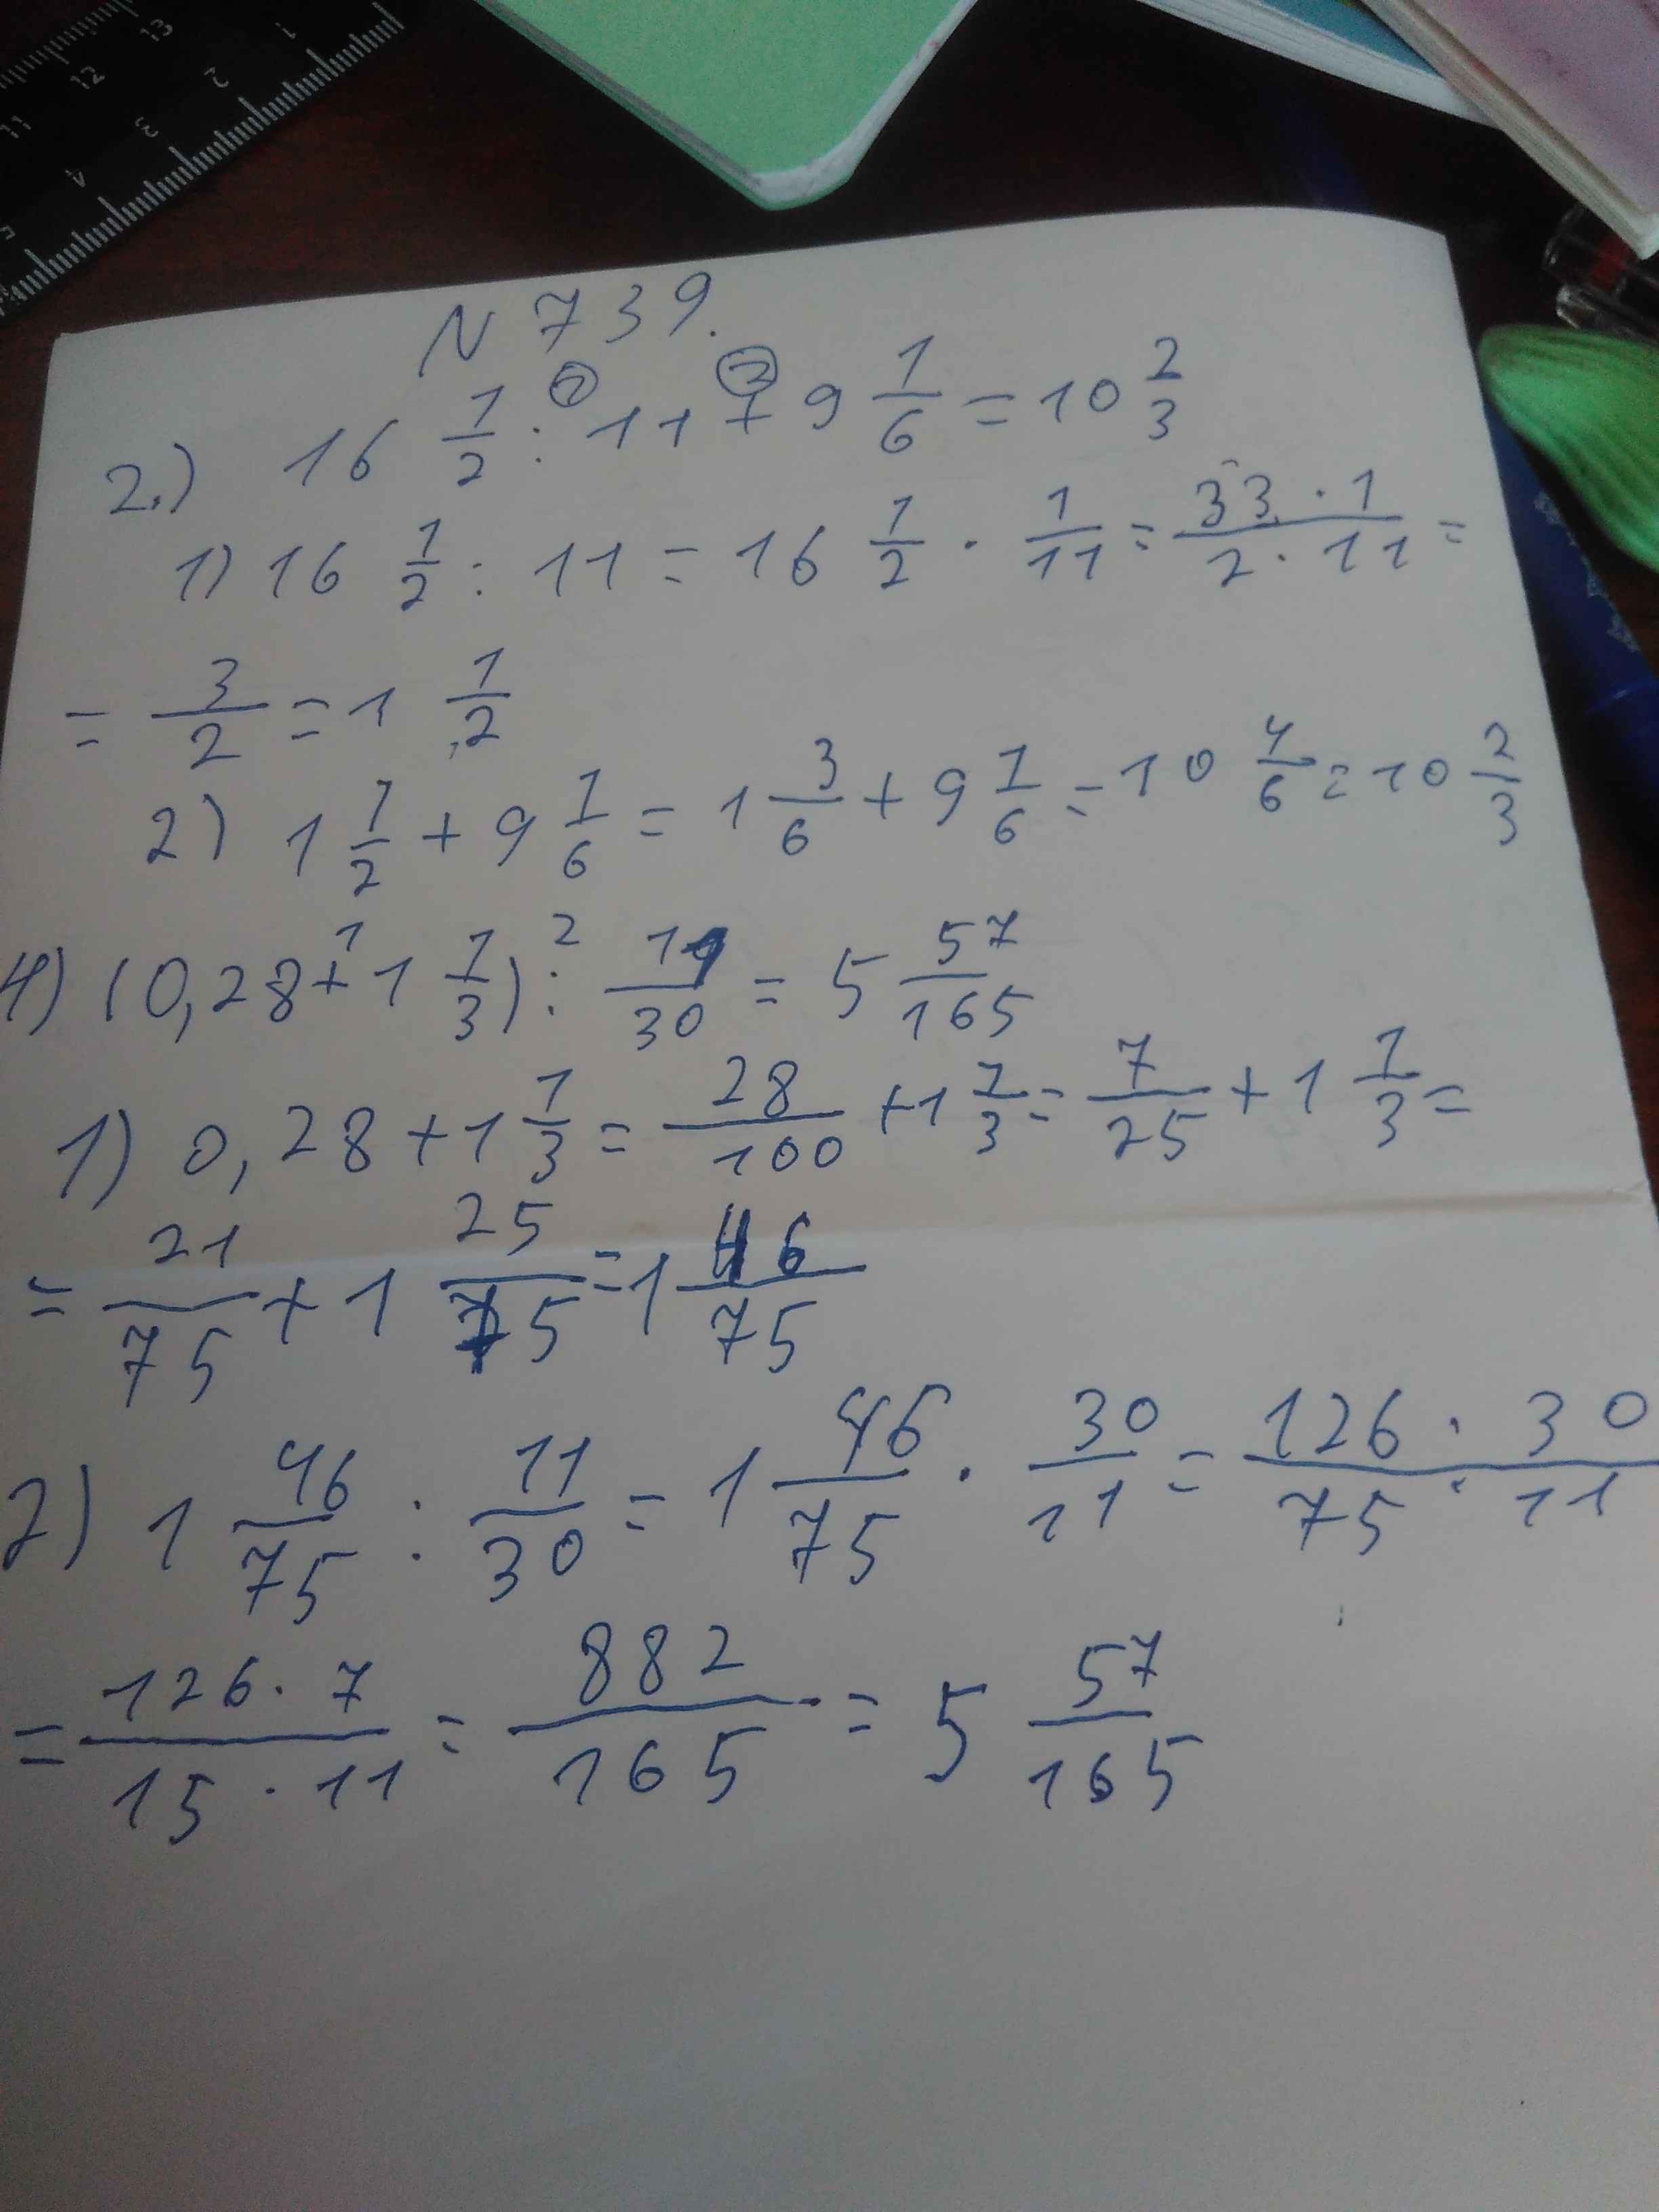 N 739.
2.) 16 1/2 : 11 + 9 1/6 = 10 2/3
1) 16 1/2 : 11 = 16 1/2 · 1/11 = 33 · 1 / 2 · 11 =
= 3/2 = 1 1/2
2) 1 1/2 + 9 1/6 = 1 3/6 + 9 1/6 = 10 4/6 = 10 2/3
4) (0,28 + 1 1/3) : 11/30 = 5 57/165
1) 0,28 + 1 1/3 = 28/100 + 1 1/3 = 7/25 + 1 1/3 =
= 21/75 + 1 25/75 = 1 46/75
2) 1 46/75 : 11/30 = 1 46/75 · 30/11 = 126 · 30 / 75 · 11
= 126 · 7 / 15 · 11 = 882/165 = 5 57/165